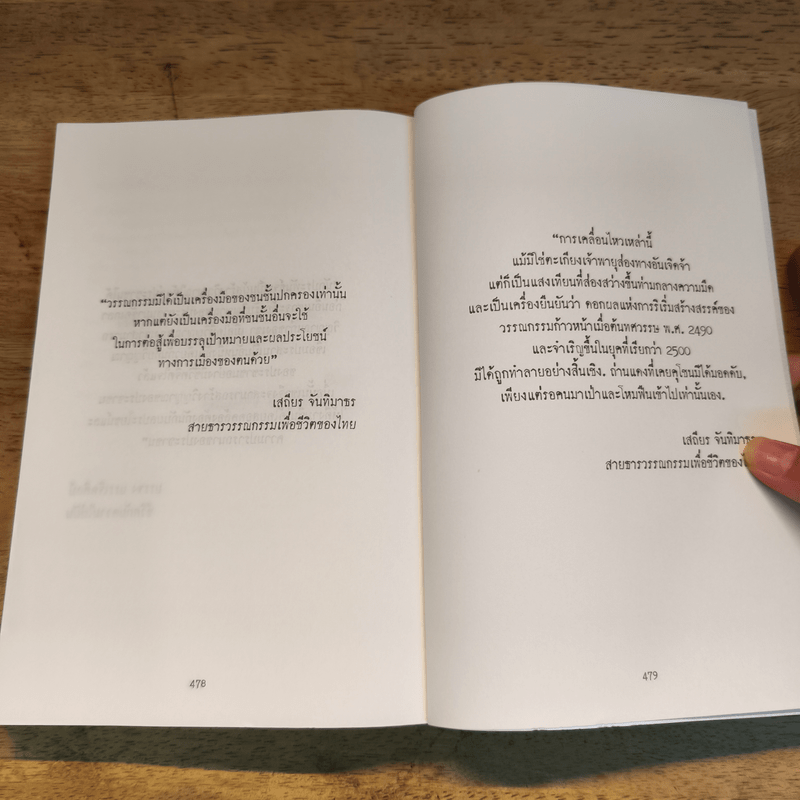 “วรรณกรรมมิได้เป็นเครื่องมือของชนชั้นปกครองเท่านั้น
หากแต่ยังเป็นเครื่องมือที่ชนชั้นอื่นจะใช้
ในการต่อสู้เพื่อบรรลุเป้าหมายและผลประโยชน์
ทางการเมืองของตนด้วย”
เสถียร จันทิมาธร
สายธารวรรณกรรมเพื่อชีวิตของไทย
478
“การเคลื่อนไหวเหล่านี้
แม้มิใช่ตะเกียงเจ้าพายุส่องทางอันเจิดจ้า
แต่ก็เป็นแสงเทียนที่ส่องสว่างขึ้นท่ามกลางความมืด
และเป็นเครื่องยืนยันว่า ดอกผลแห่งการริเริ่มสร้างสรรค์ของ
วรรณกรรมก้าวหน้าเมื่อต้นทศวรรษ พ.ศ. 2490
และจำเริญขึ้นในยุคที่เรียกว่า 2500
มิได้ถูกทำลายอย่างสิ้นเชิง. ถ่านแดงที่เคยคุโชนมิได้มอดดับ,
เพียงแต่รอคนมาเป่าและโหมฟืนเข้าไปเท่านั้นเอง.
เสถียร จันทิมาธร
สายธารวรรณกรรมเพื่อชีวิตของ
479